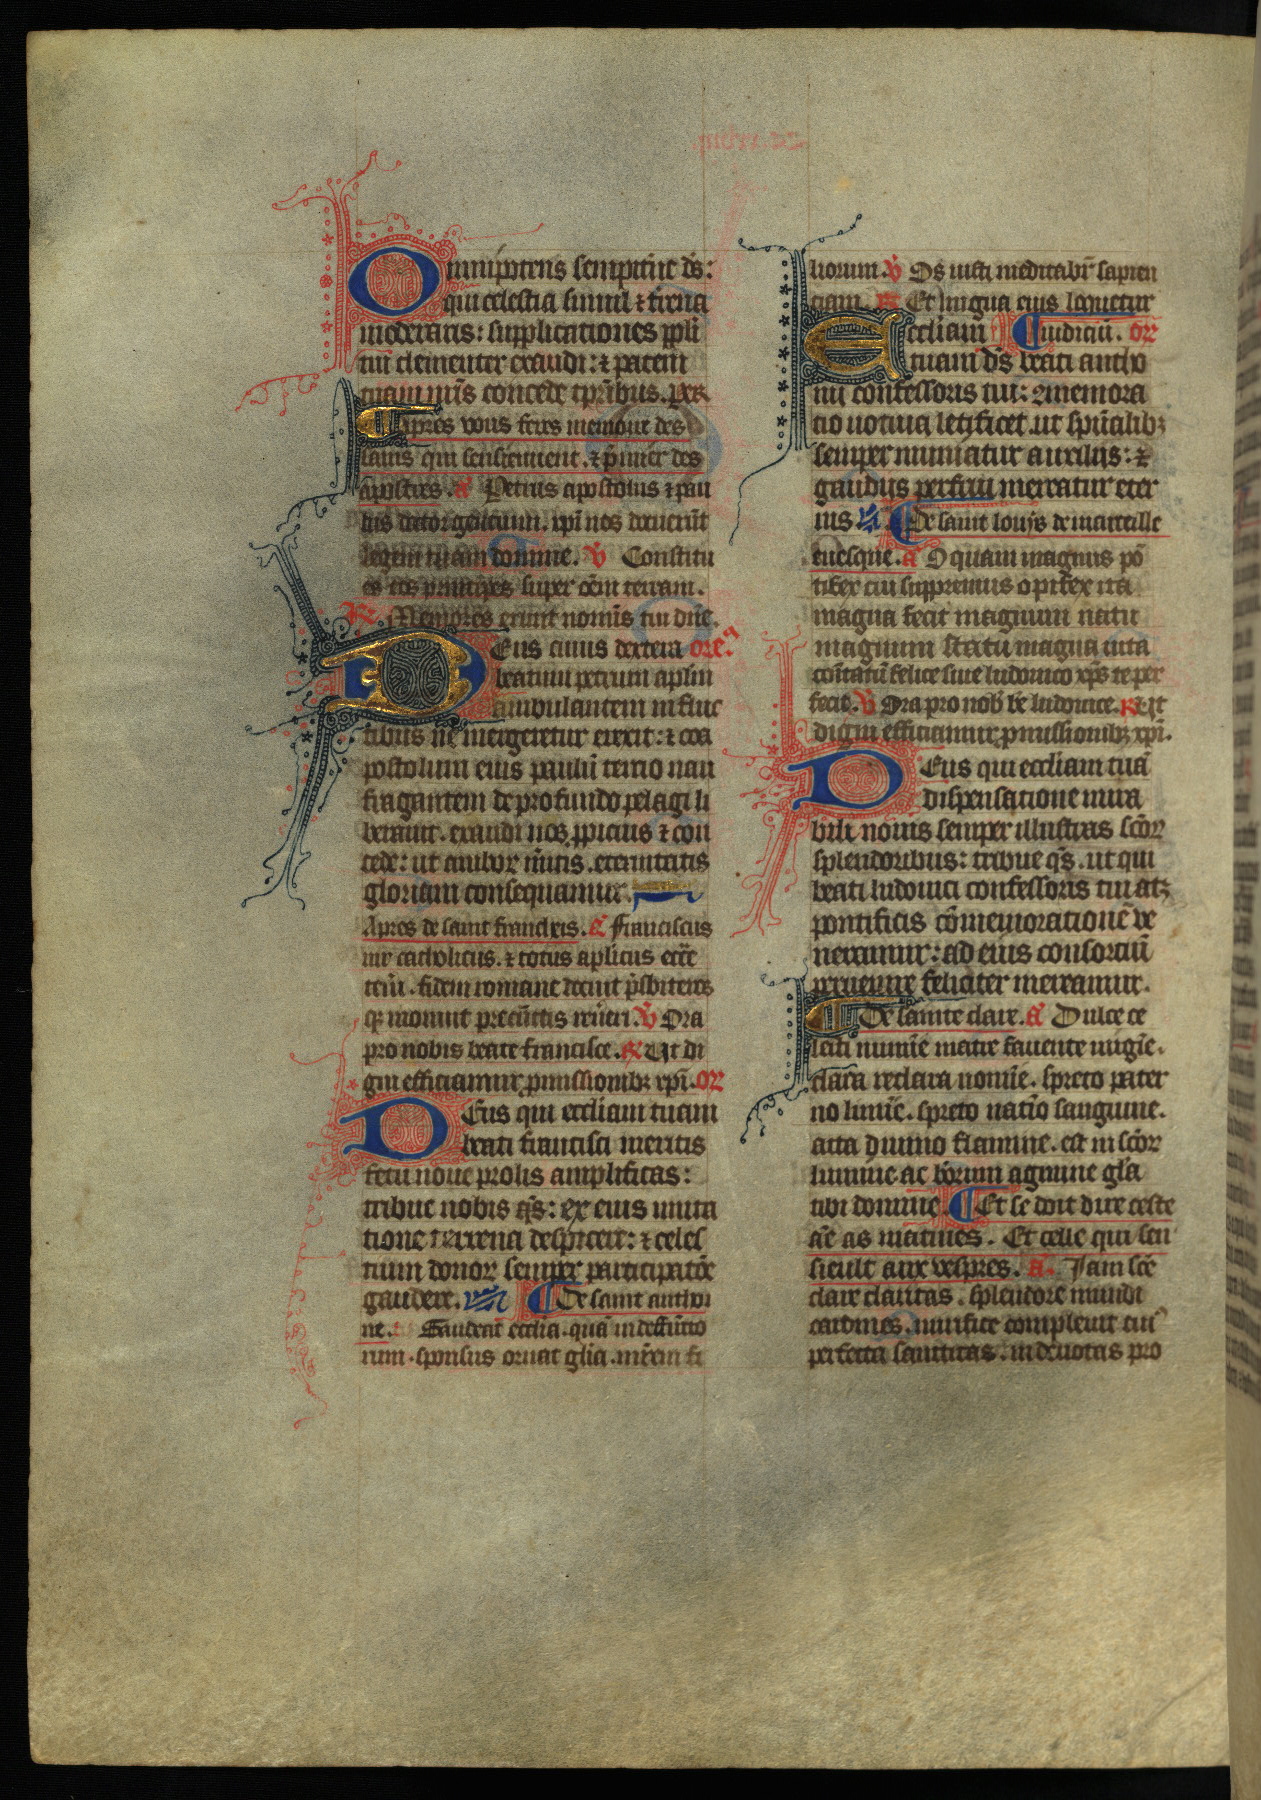 Omnipotens sempitne ds:
qui celestia simul ⁊ trena
moderaris: supplicationes ppli
tui clementer exaudi: ⁊ pacem
tuam nris concede tpribus. per
Apres vous feres memoire des
sains qui sensieuent. ⁊ pmier des
apostres. a Petrus apostolus ⁊ pau
lus doctor gencium. ipi nos docuerut
legem tuam domine. V Constitu
es eos principes super oem terram.
R. Memores erunt nominis tui dne.
Deus cuius dextera ore
beatum petrum aplm
ambulantem in fluc
tibus ne mergeretur erexit: ⁊ coa
postolum eius paulu tercio nau
fragantem de profundo pelagi li
berauit. exaudi nos ppicius ⁊ con
cede: ut amborꝝ mitis. eternitatis
gloriam consequamur.
Apres de saint franchois. a Franciscus
uir catholicus. ⁊ totus aplicus ecce
teneri. fidem romane docuit psbiteros
qꝫ monuit pre cunctis reueri. V Ora
pro nobis beate francisce. R Ut di
gni efficiamur pmissionibꝫ xpi. or
Deus qui eccliam tuam
beati francisci meritis
fetu noue prolis amplificas:
tribue nobis qs: ex eius imita
tione terrena despicere: ⁊ celes
tium donorꝝ semper participatoe
gaudere. De saint antho
ne. Gaudeat ecclia. qua in deffucto
rum. sponsus ornat glia. mrem fi
liorum. V Os iusti meditabr sapien
ciam. R Et lingua eius loquetur
Eccliam iudiciu. or
tuam ds beati antho
nii confessoris tui: ꝯmemora
tio uotiua letificet. ut spualibꝫ
semper muniatur auxiliis: ⁊
gaudiis perfrui mereatur eter
nis De saint louys de marceille
euesque. a O quam magnus po
tifex cui suppremus opifex ita
magna fecit magnum natu
magnum statu magna uita
comitatu felice siue ludouico xps te per
fecit. V Ora pro nob be ludouice. R Ut
digni efficiamur pmissionibꝫ xpi.
Deus qui eccliam tua
dispensatione mira
bili. nouis semper illustras scorꝝ
splendoribus: tribue qs. ut qui
beati ludouici confessoris tui atqꝫ
pontificis comemoratione ve
neramur: ad eius consorciu
peruenire feliciter mereamur.
De sainte clare. a Dulce ce
lesti numine matre fauente uirgine.
clara preclara nomine. spreto pater
no limine. spreto natio sanguine.
acta diuino flamine. est in scorꝝ
lumine ac horum agmine gla
tibi domine. Et se doit dire ceste
ane as matines. Et celle qui sen
sieult aux vespres. a. Iam sce
clare claritas. splendore mundi
cardines. mirifice compleuit cui
perfecta sanctitas. in deuotas pro